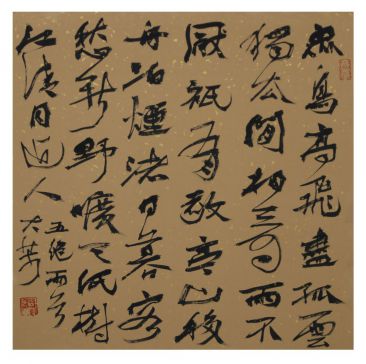 眾鳥高飛盡孤雲
獨去閒相看兩不
厭祇有敬亭山移
舟泊煙渚日暮客
愁新野曠天低樹
江清月近人
五絕兩首
大